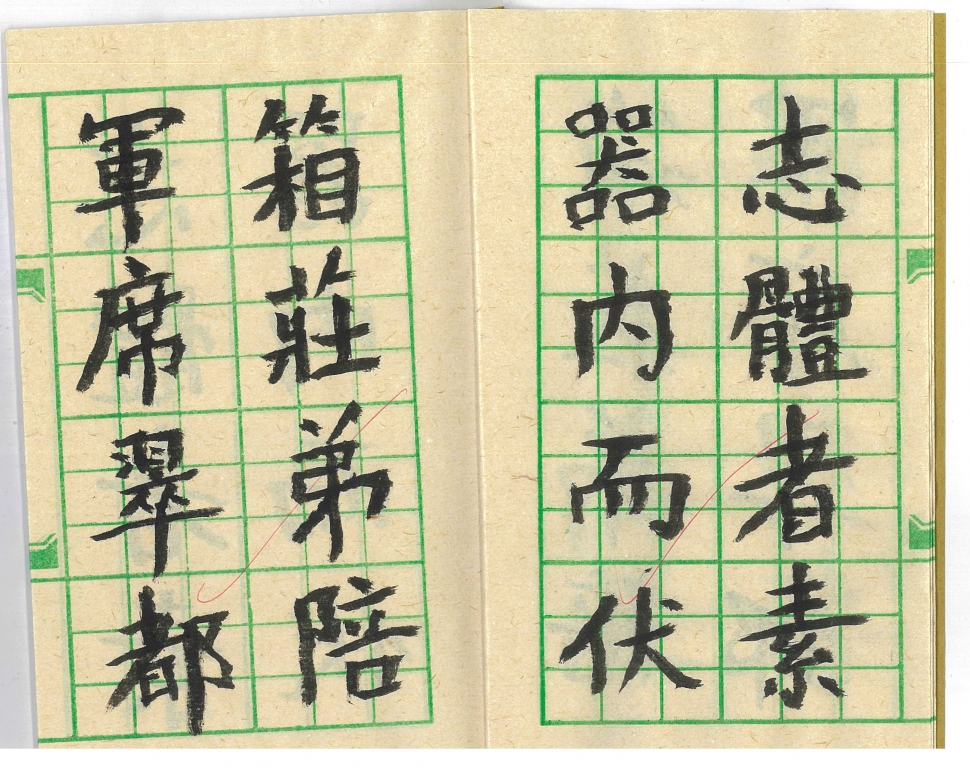 志體者素
器内而伏
箱莊弟陪
軍席翠都